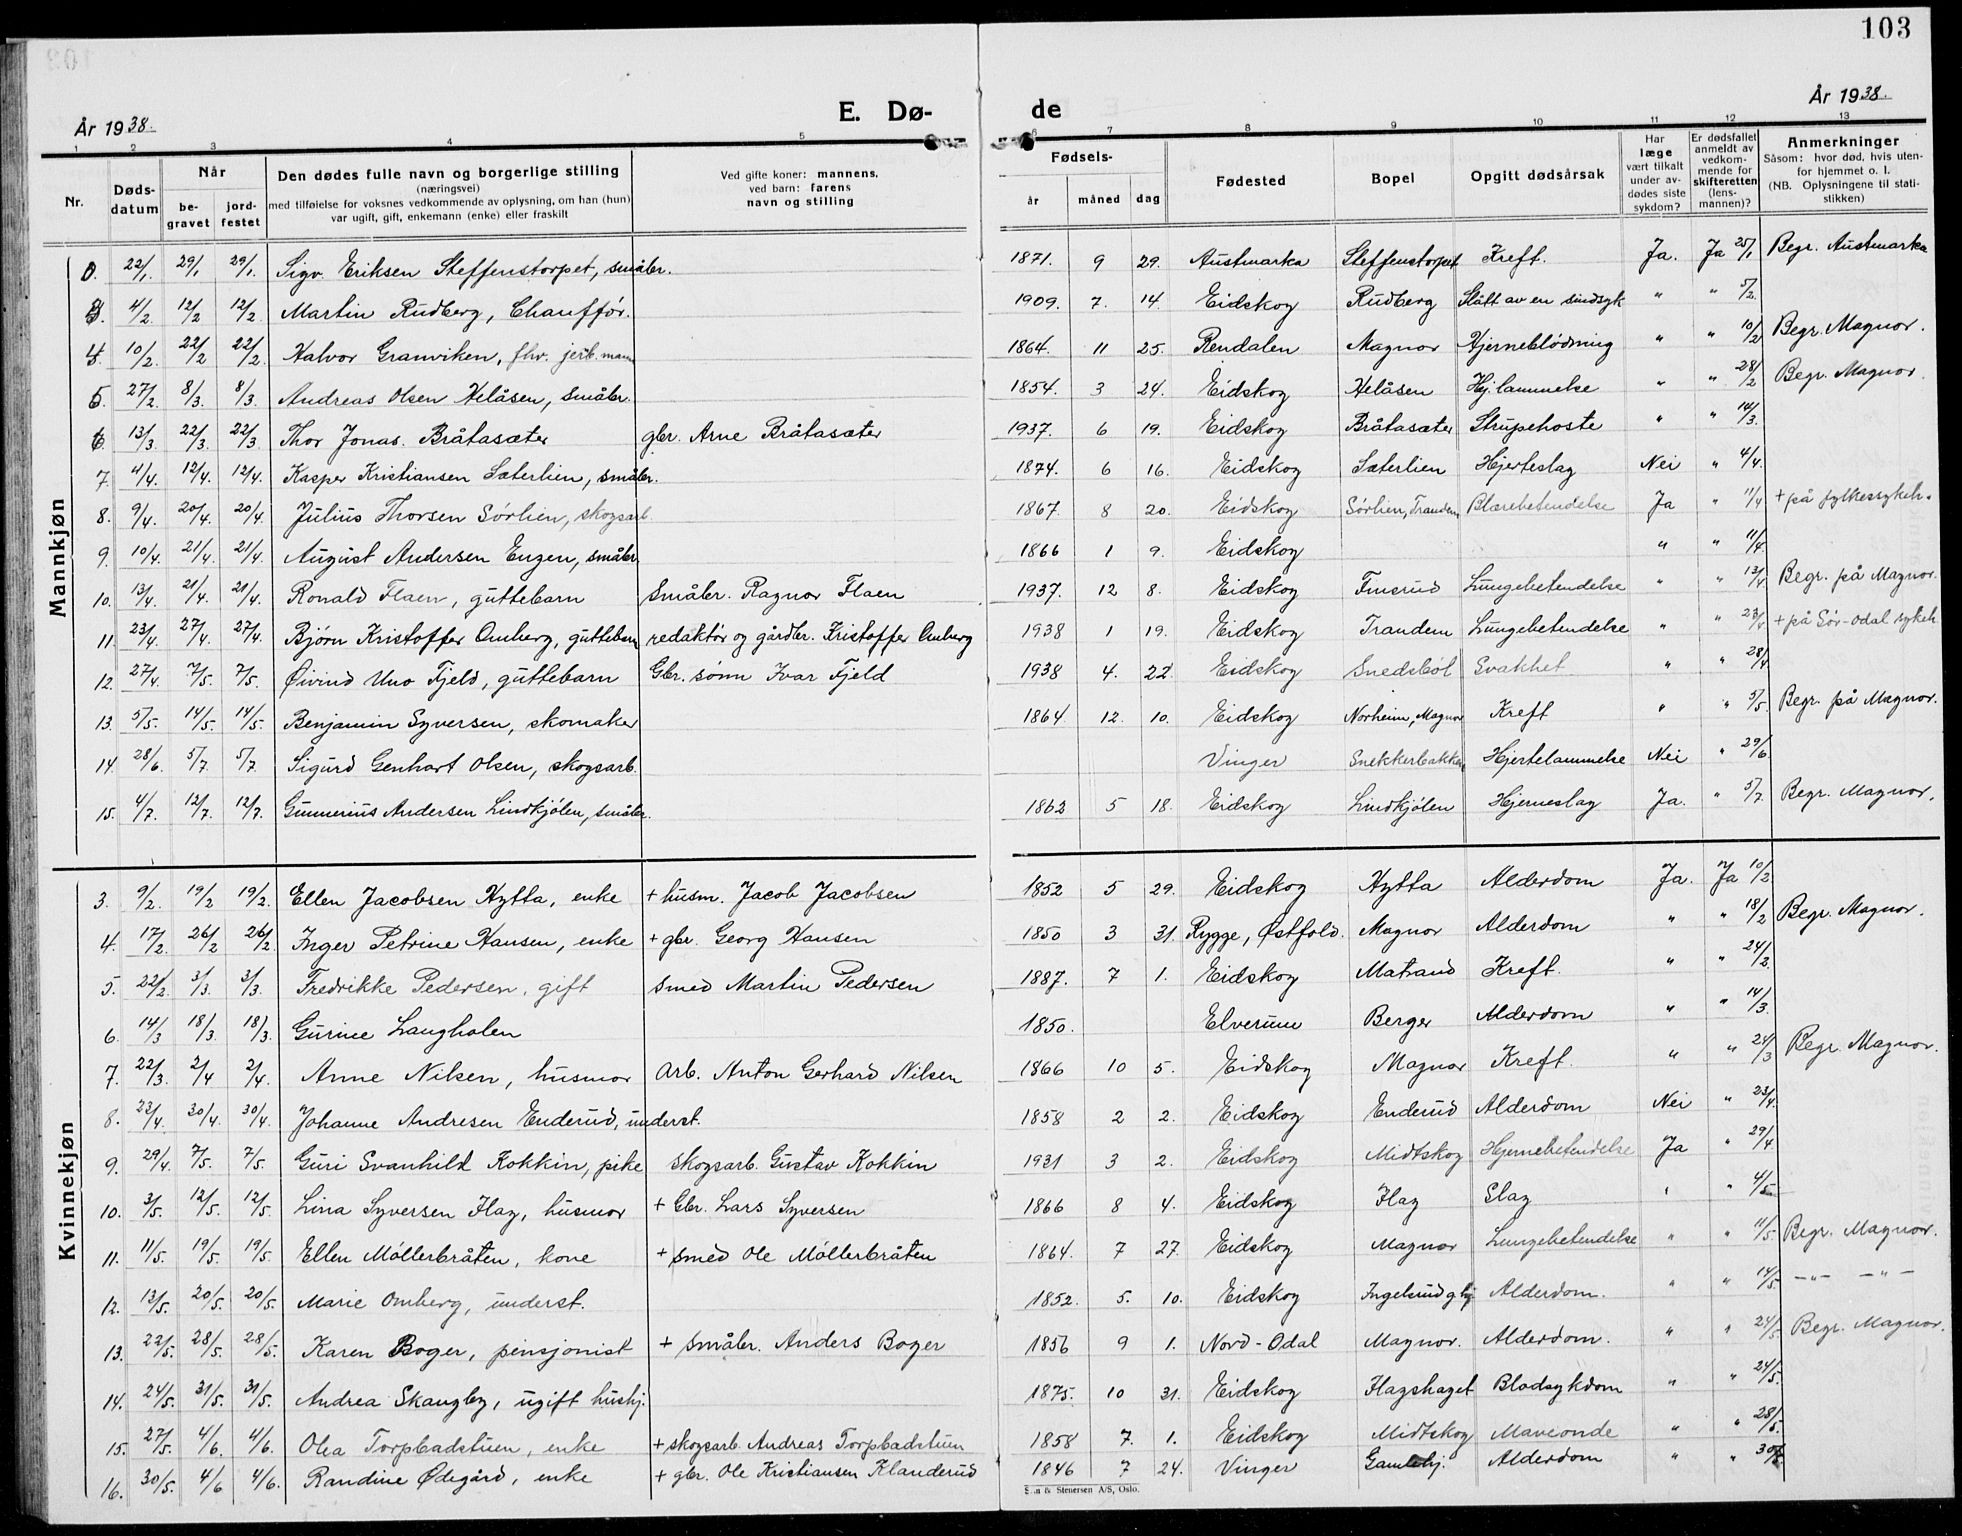 103
År 1938.
E. Dø-
de
År 1938.
1 2 3 4 5 6 7 8 9 10 11 12 13
Nr.
Døds-datum
Når
be-gravet
jord-festet
Den dødes fulle navn og borgerlige stilling
(næringsvei)
med tilføielse for voksnes vedkommende av oplysning, om han (hun)
var ugift, gift, enkemann (enke) eller fraskilt
Ved gifte koner: mannens,
ved barn: farens
navn og stilling
Fødsels-
år måned dag
Fødested
Bopel
Opgitt dødsårsak
Har læge vært tilkalt under av-dødes siste sykdom?
Er dødsfallet anmeldt av vedkom-mende for skifteretten (lens-mannen)?
Anmerkninger
Såsom: hvor død, hvis uten-
for hjemmet o. l.
(NB. Oplysningene til stati-
stikken)
Mannkjøn
22/1. 29/1 29/1. Sigv. Eriksen Steffenstorpet, småbr. 1871. 9 29. Austmarka Steffenstorpet Kreft. Ja. Ja 25/1 Begr. Austmarka
3. 4/2. 12/2 12/2. Martin Rudberg, Chauffør. 1909. 7. 14. Eidskog Rudberg Slått av en sindsyk " " 5/2.
4. 10/2. 22/2 22/2. Halvor Granviken, fhv. jerb.mann 1864. 11 25. Rendalen Magnor Hjerneblødning " " 10/2 Begr. Magnor.
5. 27/2. 8/3. 8/3. Andreas Olsen Helåsen, småbr. 1854. 3 24. Eidskog Helåsen Hj.lammelse " " 28/2 Begr. Magnor.
6. 13/3. 22/3. 22/3 Thor Jonas Bråtasæter gbr. Arne Bråtasæter 1937. 6 19. Eidskog Bråtasæter Strupehoste " " 14/3.
7. 4/4. 12/4. 12/4. Kasper Kristiansen Sæterlien, småbr. 1874. 6 16. Eidskog Sæterlien Hjerteslag Nei " 4/4.
8. 9/4. 20/4. 20/4. Julius Thorsen Sørlien, skogsarb. 1867. 8 20. Eidskog Sørlien, Trandem Blærebetendelse Ja " 11/4 + på fylkessykeh.
9. 10/4. 21/4. 21/4. August Andersen Engen, småbr. 1866 1 9. Eidskog " " 11/4.
10. 13/4. 21/4. 21/4. Ronald Flaen, guttebarn Småbr. Ragnor Flaen 1937. 12 8. Eidskog Finsrud Lungebetendelse " " 13/4 Begr. på Magnor.
11. 23/4. 27/4. 27/4. Bjørn Kristoffer Omberg, guttebarn redaktør og gårdbr. Kristoffer Omberg 1938 1 19. Eidskog Trandem Lungebetendelse " " 23/4 + på Sør-Odal sykeh.
12. 27/4. 7/5. 7/5. Øivind Uno Fjeld, guttebarn Gbr. sønn Ivar Fjeld 1938 4. 22. Eidskog Snedsböl Svakhet " " 28/4
13. 5/5. 14/5. 14/5. Benjamin Syversen, skomaker 1864 12. 10. Eidskog Norheim, Magnor Kreft " " 5/5. Begr. på Magnor.
14. 28/6. 5/7. 5/7. Sigurd Genhart Olsen, skogsarb. Vinger Snekkerbakken Hjertelammelse Nei " 29/6.
15. 4/7. 12/7. 12/7. Gunnerius Andersen Lindkjølen, småbr. 1862 5 18. Eidskog Lindkjølen Hjerneslag Ja. " 5/7. Begr. Magnor.
Kvinnekjøn
3. 9/2. 19/2 19/2. Ellen Jacobsen Hytta, enke + husm. Jacob Jacobsen 1852 5 29. Eidskog Hytta Alderdom Ja. Ja 10/2
4. 17/2. 26/2 26/2. Inger Petrine Hansen, enke + gbr. Georg Hansen 1850 3 31. Rygge, Østfold. Magnor Alderdom " " 18/2 Begr. Magnor.
5. 22/2. 3/3. 3/3. Fredrikke Pedersen, gift Smed Martin Pedersen 1887. 7 1. Eidskog Matrand Kreft. " " 24/2.
6. 14/3 18/3 18/3. Gurine Langholen 1850. Elverum Berger Alderdom " " 14/3.
7. 22/3. 2/4 2/4. Anne Nilsen, husmor Arb. Anton Gerhard Nilsen 1866 10 5. Eidskog Magnor Kreft. " " 24/3 Begr. Magnor.
8. 23/4. 30/4. 30/4. Johanne Andresen Enderud, underst. 1858 2 2. Eidskog Enderud Alderdom Nei " 23/4.
9. 29/4. 7/5. 7/5. Guri Svanhild Kokkin, pike skogsarb. Gustav Kokkin 1931 3 2. Eidskog Midtskog Hjernebetendelse Ja " 29/4
10. 3/5. 12/5. 12/5. Lina Syversen Flag, husmor + Gbr. Lars Syversen 1866 8 4. Eidskog Flag Slag " " 4/5
11. 11/5. 19/5. 19/5. Ellen Møllerbråten, kone + smed Ole Møllerbråten 1864. 7 27. Eidskog Magnor Lungebetendelse " " 11/5. Begr. Magnor.
12. 13/5. 20/5. 20/5. Marie Omberg, underst. 1852. 5. 10. Eidskog Alderdom. " " 14/5 —"— —"—
13. 22/5. 28/5. 28/5. Karen Boger, pensjonist + småbr. Anders Boger 1856 9 1. Nord-Odal Magnor. Alderdom. " " 24/5. Begr. Magnor.
14. 24/5. 31/5. 31/5. Andrea Skaugby, ugift hushj. 1875. 10 31. Eidskog Flagshaget Blodsykdom " " 24/5.
15. 27/5. 4/6. 4/6. Olea Torpbadstuen, enke + skogsarb. Andreas Torpbadstuen 1858 7. 1. Eidskog Midtskog Maveonde " " 28/5.
16. 30/5. 4/6 4/6. Randine Ødegård, enke + gbr. Ole Kristiansen Klanderud 1846 7 24. Vinger Gamlehj. Alderdom " "
& Stenersen A/S, Oslo.